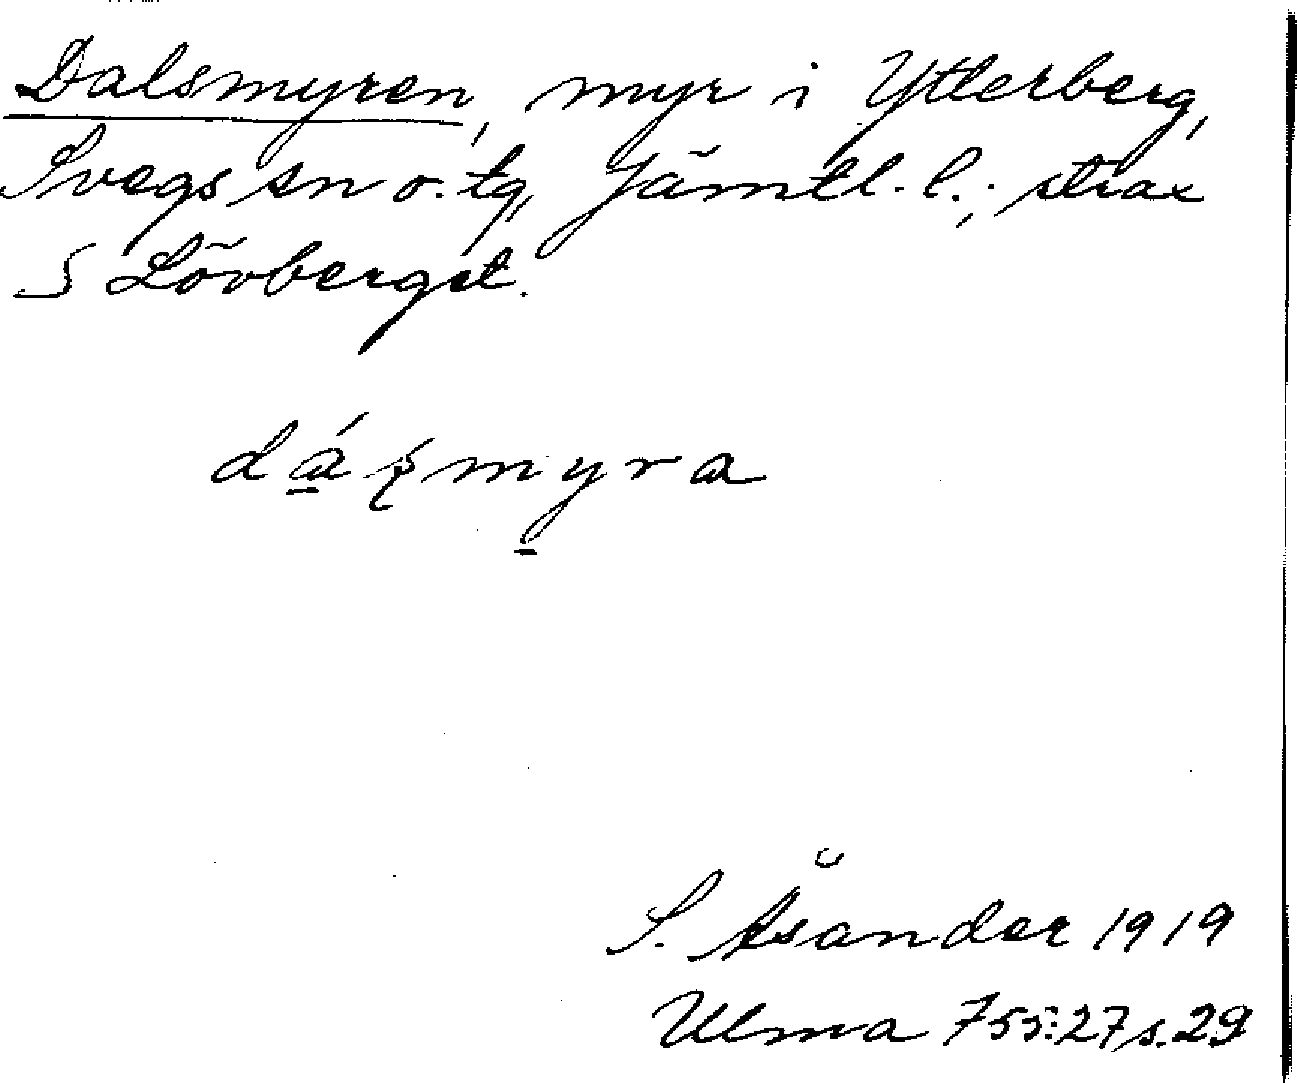 Dalsmyren, myr i Ytterberg,
Svegs sn o. tg, Jämtl. l.; strax
S Lövberget.
dáʂmyra
S. Åsander 1919
Ulma 755:27 s. 29